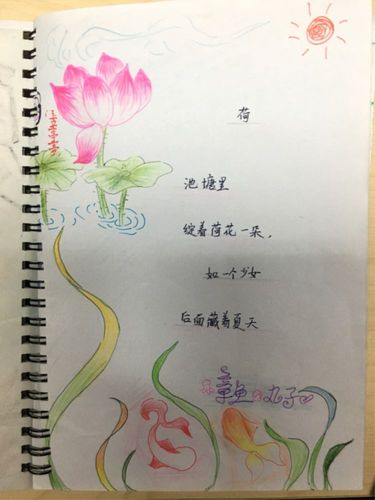 荷
池塘里
绽着荷花一朵,
如一个少女
后面藏着夏天
章鱼丸子